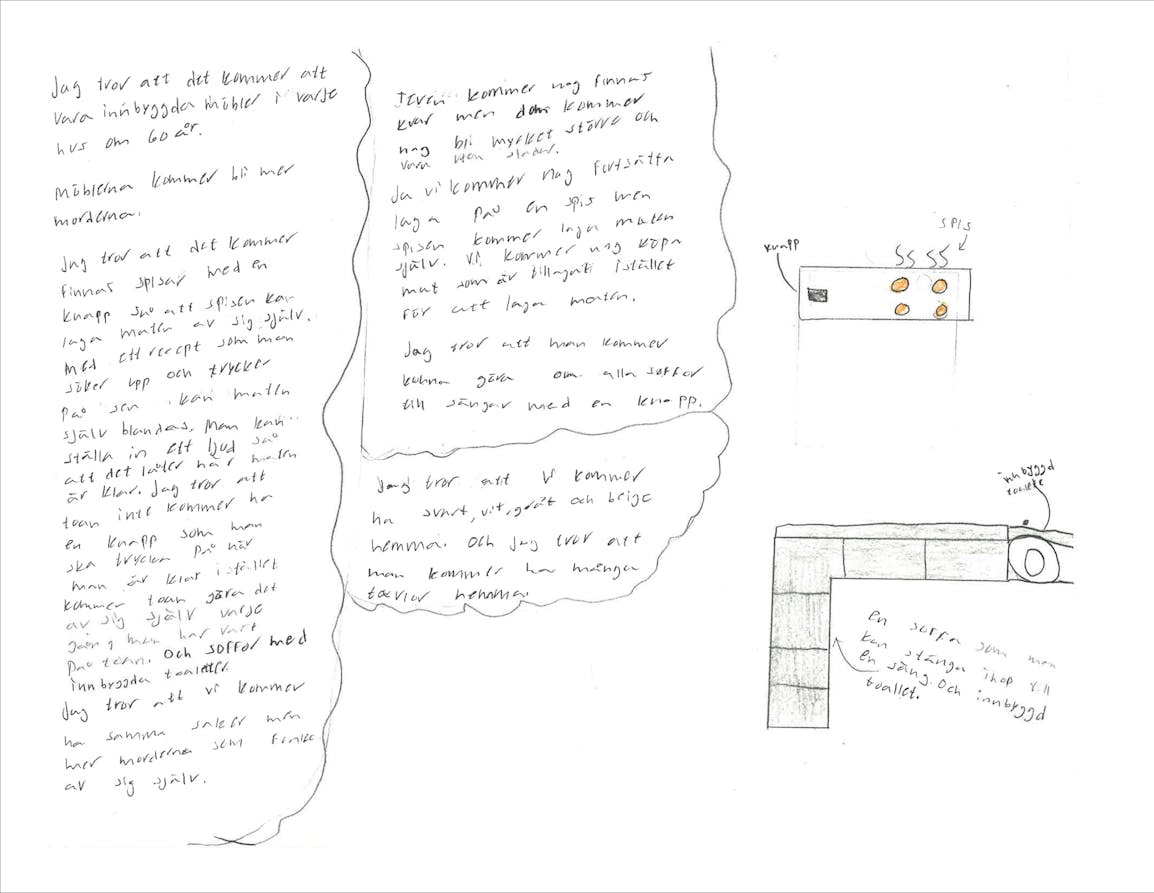 Jag tror att det kommer att
vara innbyggda möbler i varje
hus om 60 år.
Möblerna kommer bli mer
morderna.
Jag tror att det kommer
finnas spisar med en
knapp så att spisen kan
laga maten av sig själv.
Med ett recept som man
söker upp och trycker
på sen kan maten
själv blandas. Man kan
ställa in ett ljud så
att det låter när maten
är klar. Jag tror att
toan inte kommer ha
en knapp som man
ska trycka på när
man är klar istället
kommer toan göra det
av sig själv varje
gång man har vart
på toan. Och soffor med
innbyggda toaletter.
Jag tror att vi kommer
ha samma saker men
mer morderna som funkar
av sig själv.
Teven kommer nog finnas
kvar men dom kommer
nog bli mycket större och
vara utan sladdar.
Ja vi kommer nog fortsätta
laga på en spis men
spisen kommer laga maten
själv. Vi kommer nog köpa
mat som är tillagat istället
för att laga maten.
Jag tror att man kommer
kunna göra om alla soffor
till sängar med en knapp.
Jag tror att vi kommer
ha svart, vit, grått och beige
hemma. Och jag tror att
man kommer ha många
teevior hemma.
spis
knapp
innbyggd
toalett
en soffa som man
kan stänga ihop till
en säng. Och innbyggd
toallet.